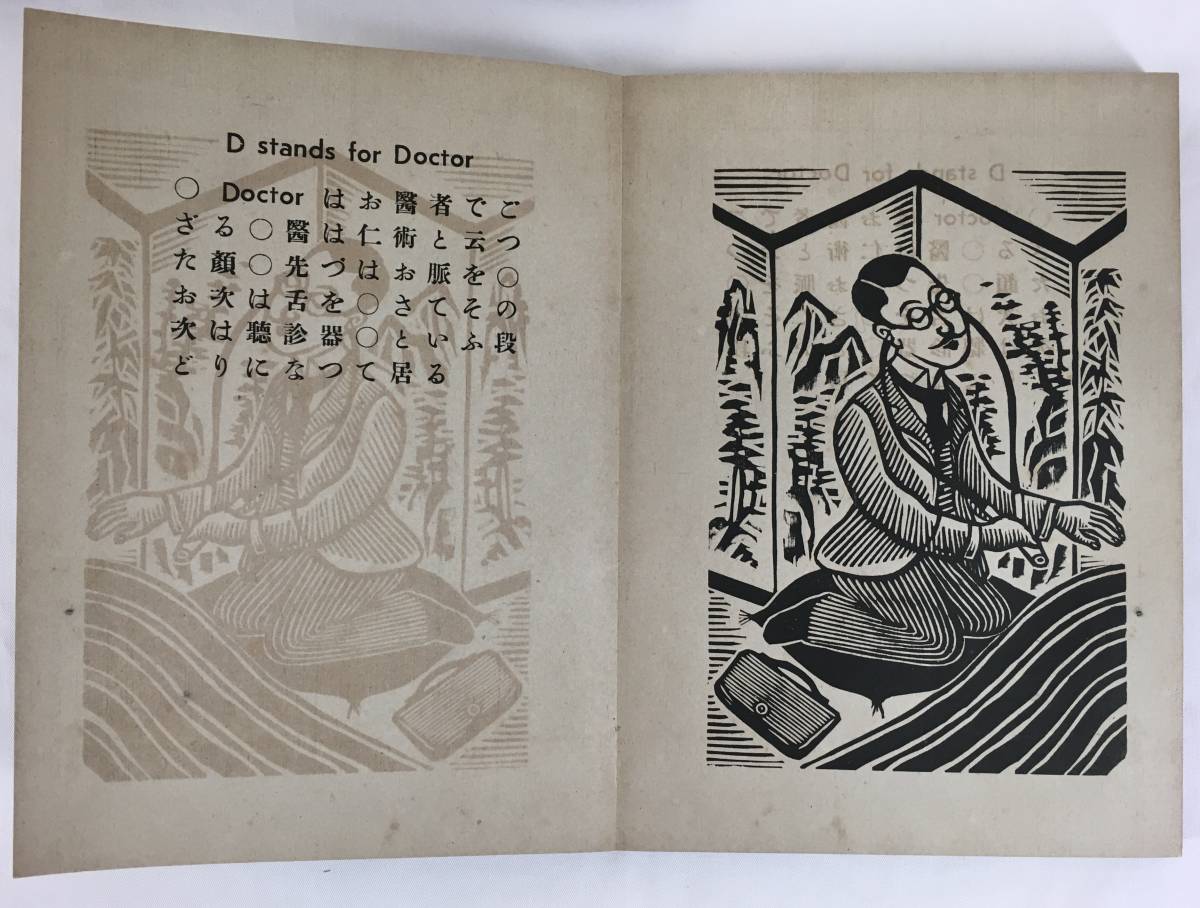 D stands for Doctor
○ Doctor はお醫者でご
ざる○醫は仁術と云つ
た顔○先づはお脈を○
お次は舌を○さてその
次は聽診器○といふ段
どりになつて居る